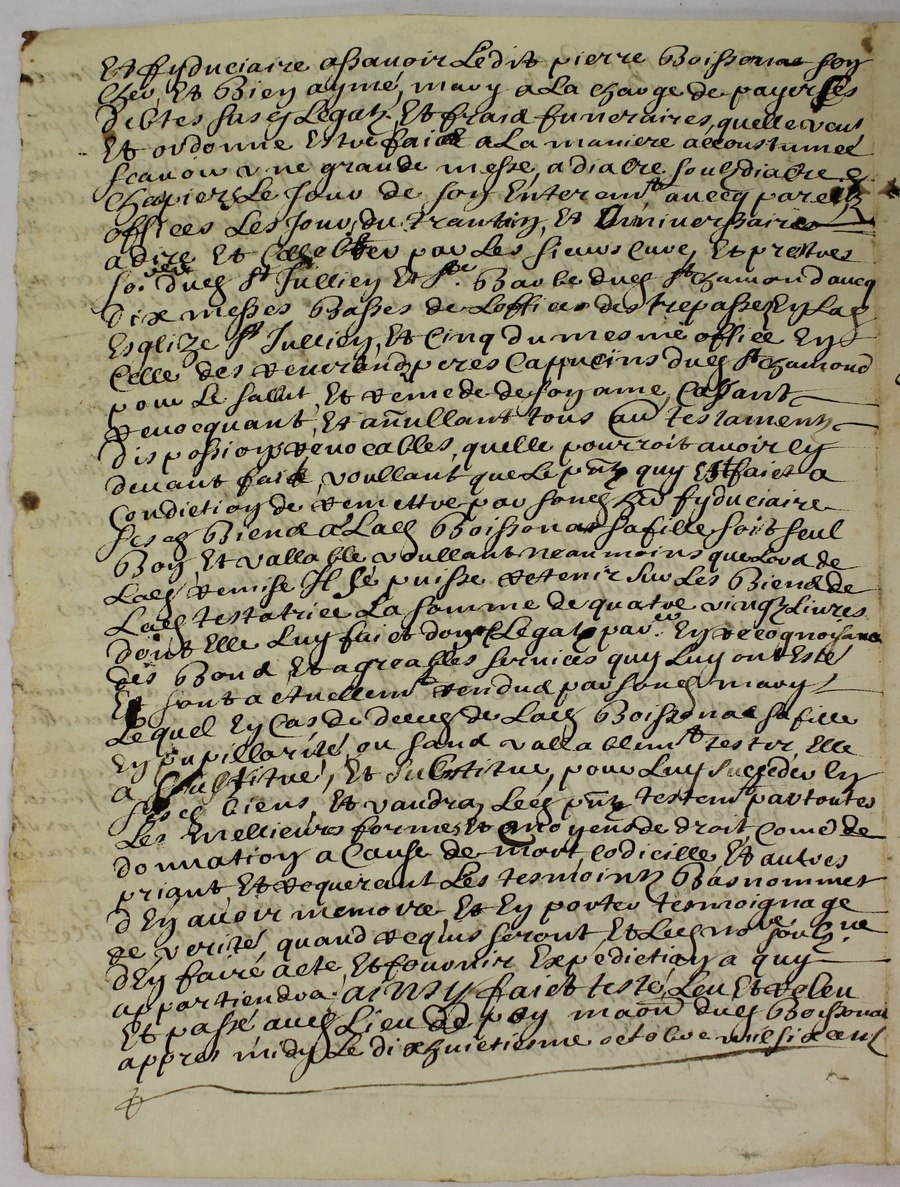 Et fyduciaire assavoir Ledit pierre Boissonat son
cher Et Bien aymé mary a La charge de payer ses
debtes susd Legatz Et fraid funeraires, quelle veut
Et ordonne Estre faict a La maniere accoustumeé
scavoir une grande messe, a diacre soubzdiacre &
chapier, Le Jour de son Enteremt avecq pareilz
offices Les Jour, du trantin, Et Anniversaire
a dire Et Cellebrer par Les sieurs Curé, Et prestres
soietté dud St Jullien Et Ste Barbe dud St chamond avecq
dix messes Basses de Loffice des trepassez En Lad
Esglize St Jullien, Et Cinq du mesme office En
Celle des Reverandz peres Cappucins dud St chamond
pour Le sallut, Et remede de son ame, Cassant
Revocquant, Et añullant tous auṽ testamentz
disposition revocables, quelle pourroit avoir Cy
devant faict, voullant que Le pñt quy Est faict a
Condiction de remettre par soned her fyduciaire
sesd Biend a Lad Boissonat sa fille soit seul
Bon, Et vallable voullant neanmoins que Lord de
Lad remise Il sé puisse retenir sur Les Biend de
Lad testatrice La somme de quatre vingtz Livres
dont Elle Luy faict don & Legat par En recognoissance
des Bond Et agreables services quy Luy ont Esté
Et sont actuellemt rendud par soned mary
Lequel En Cas de deced de Lad Boissonat sa fille
En pupillarité, ou sand vallablemt tester, Elle
a substitué, Et substitue, pour Luy sucçeder En
sesd biens Et vaudra Led pñt testemt par toutes
Les mellieures formes Et moyens de droit Come de
donnation a Cause de mort, Codicille, Et autres
priant Et requerant Les tesmointz Bas nommes
d'En avoir memoire Et En porter tesmoignage
de verité quand requis seront Et Led nore soubzne
d'En faire acte, Et fournir Expediction a quy
appartiendra. ainsy faict testé, Leu Et releu
Et passé aud Lieu de pay maõn dud Boissonat
appres midy Le dixhuictiesme octobre mil six cent